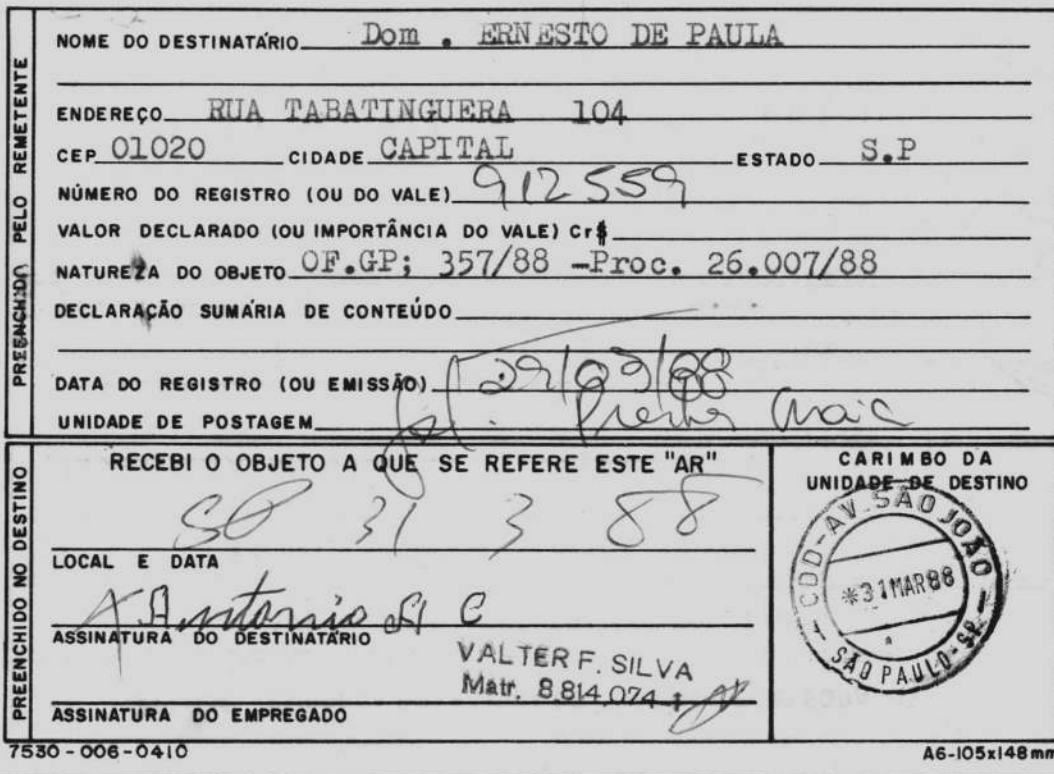 PREENCHIDO PELO REMETENTE
NOME DO DESTINATÁRIO Dom . ERNESTO DE PAULA
ENDEREÇO RUA TABATINGUERA 104
CEP 01020 CIDADE CAPITAL ESTADO S.P
NÚMERO DO REGISTRO (OU DO VALE) 912559
VALOR DECLARADO (OU IMPORTÂNCIA DO VALE) Cr$
NATUREZA DO OBJETO OF.GP; 357/88 -Proc. 26.007/88
DECLARAÇÃO SUMÁRIA DE CONTEÚDO
DATA DO REGISTRO (OU EMISSÃO) 29/03/88
UNIDADE DE POSTAGEM Prestes Maia
PREENCHIDO NO DESTINO
RECEBI O OBJETO A QUE SE REFERE ESTE "AR"
SP 31 3 88
LOCAL E DATA
Antonio
ASSINATURA DO DESTINATÁRIO
VALTER F. SILVA
Matr. 8.814.074
ASSINATURA DO EMPREGADO
CARIMBO DA
UNIDADE DE DESTINO
CDD-AV. SÃO JOÃO
*31MAR88
SÃO PAULO-SP
7530-006-0410
A6-105x148mm